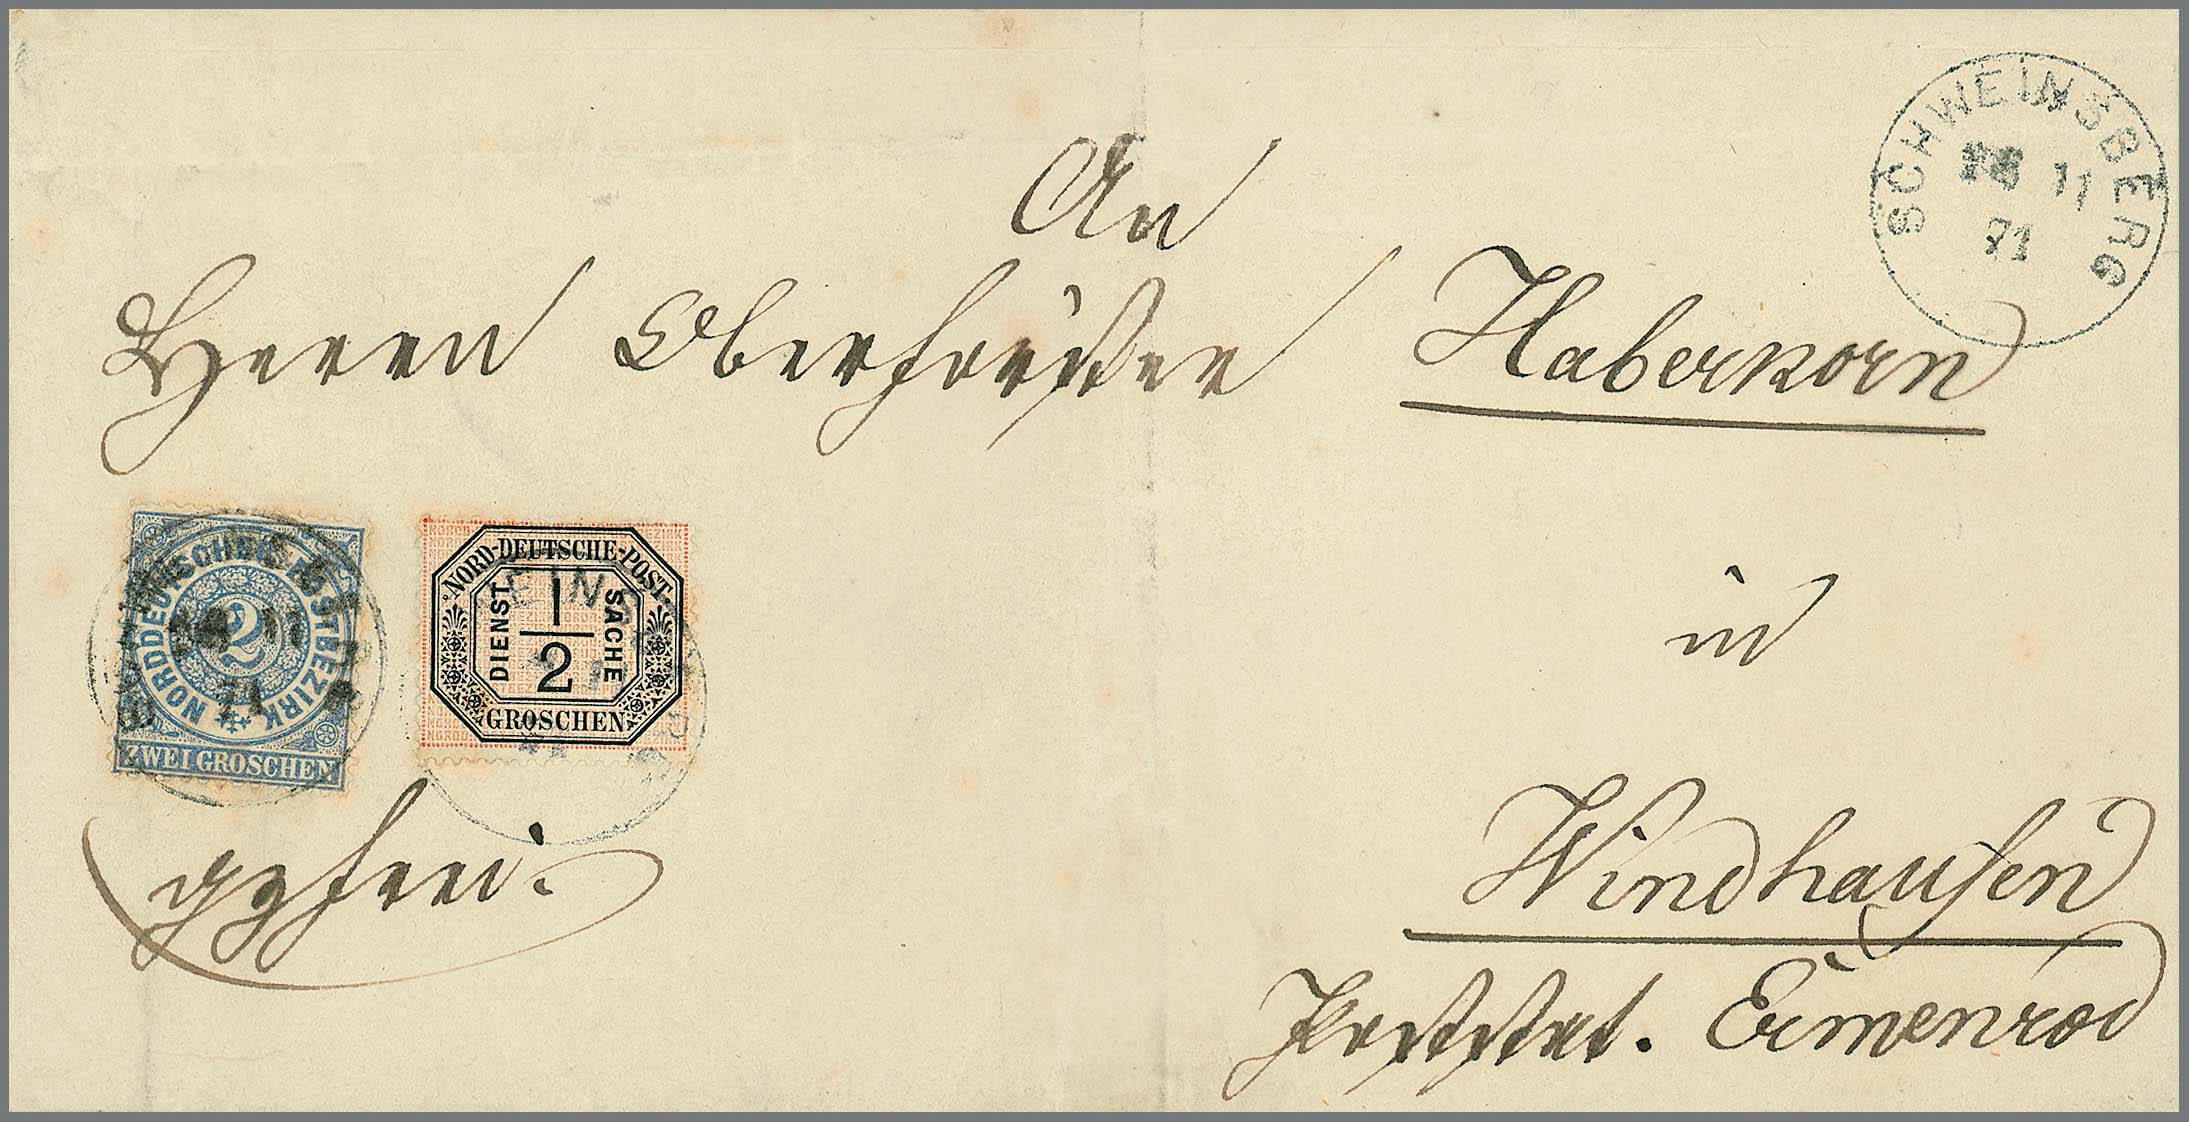 SCHWEINSBERG
11
71
An
Herrn Oberförster Haberkorn
in
Windhausen
Poststat. Eimenrod
NORDDEUTSCHER POSTBEZIRK
2
11
71
ZWEI GROSCHEN
NORD-DEUTSCHE-POST
DIENST 1/2 SACHE
GROSCHEN
EINS
frei.